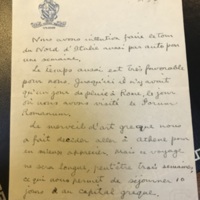 Nous avons intention faire le tour
du Nord d'Italie aussi par auto pour
une semaine.
Le temps aussi est très favorable
pour nous. Jusqu'ici il n'y avait
qu'un jour de pluie à Rome, le jour
où nous avons visité le Forum
Romanum.
Le merveil d'art grecque nous
a fait décider aller à Athène pour
en mieux apprécier. Mais ce voyage
ne sera longue, peut'être trois semaines
ce qui nous permet de séjourner
jours à capital grecque.